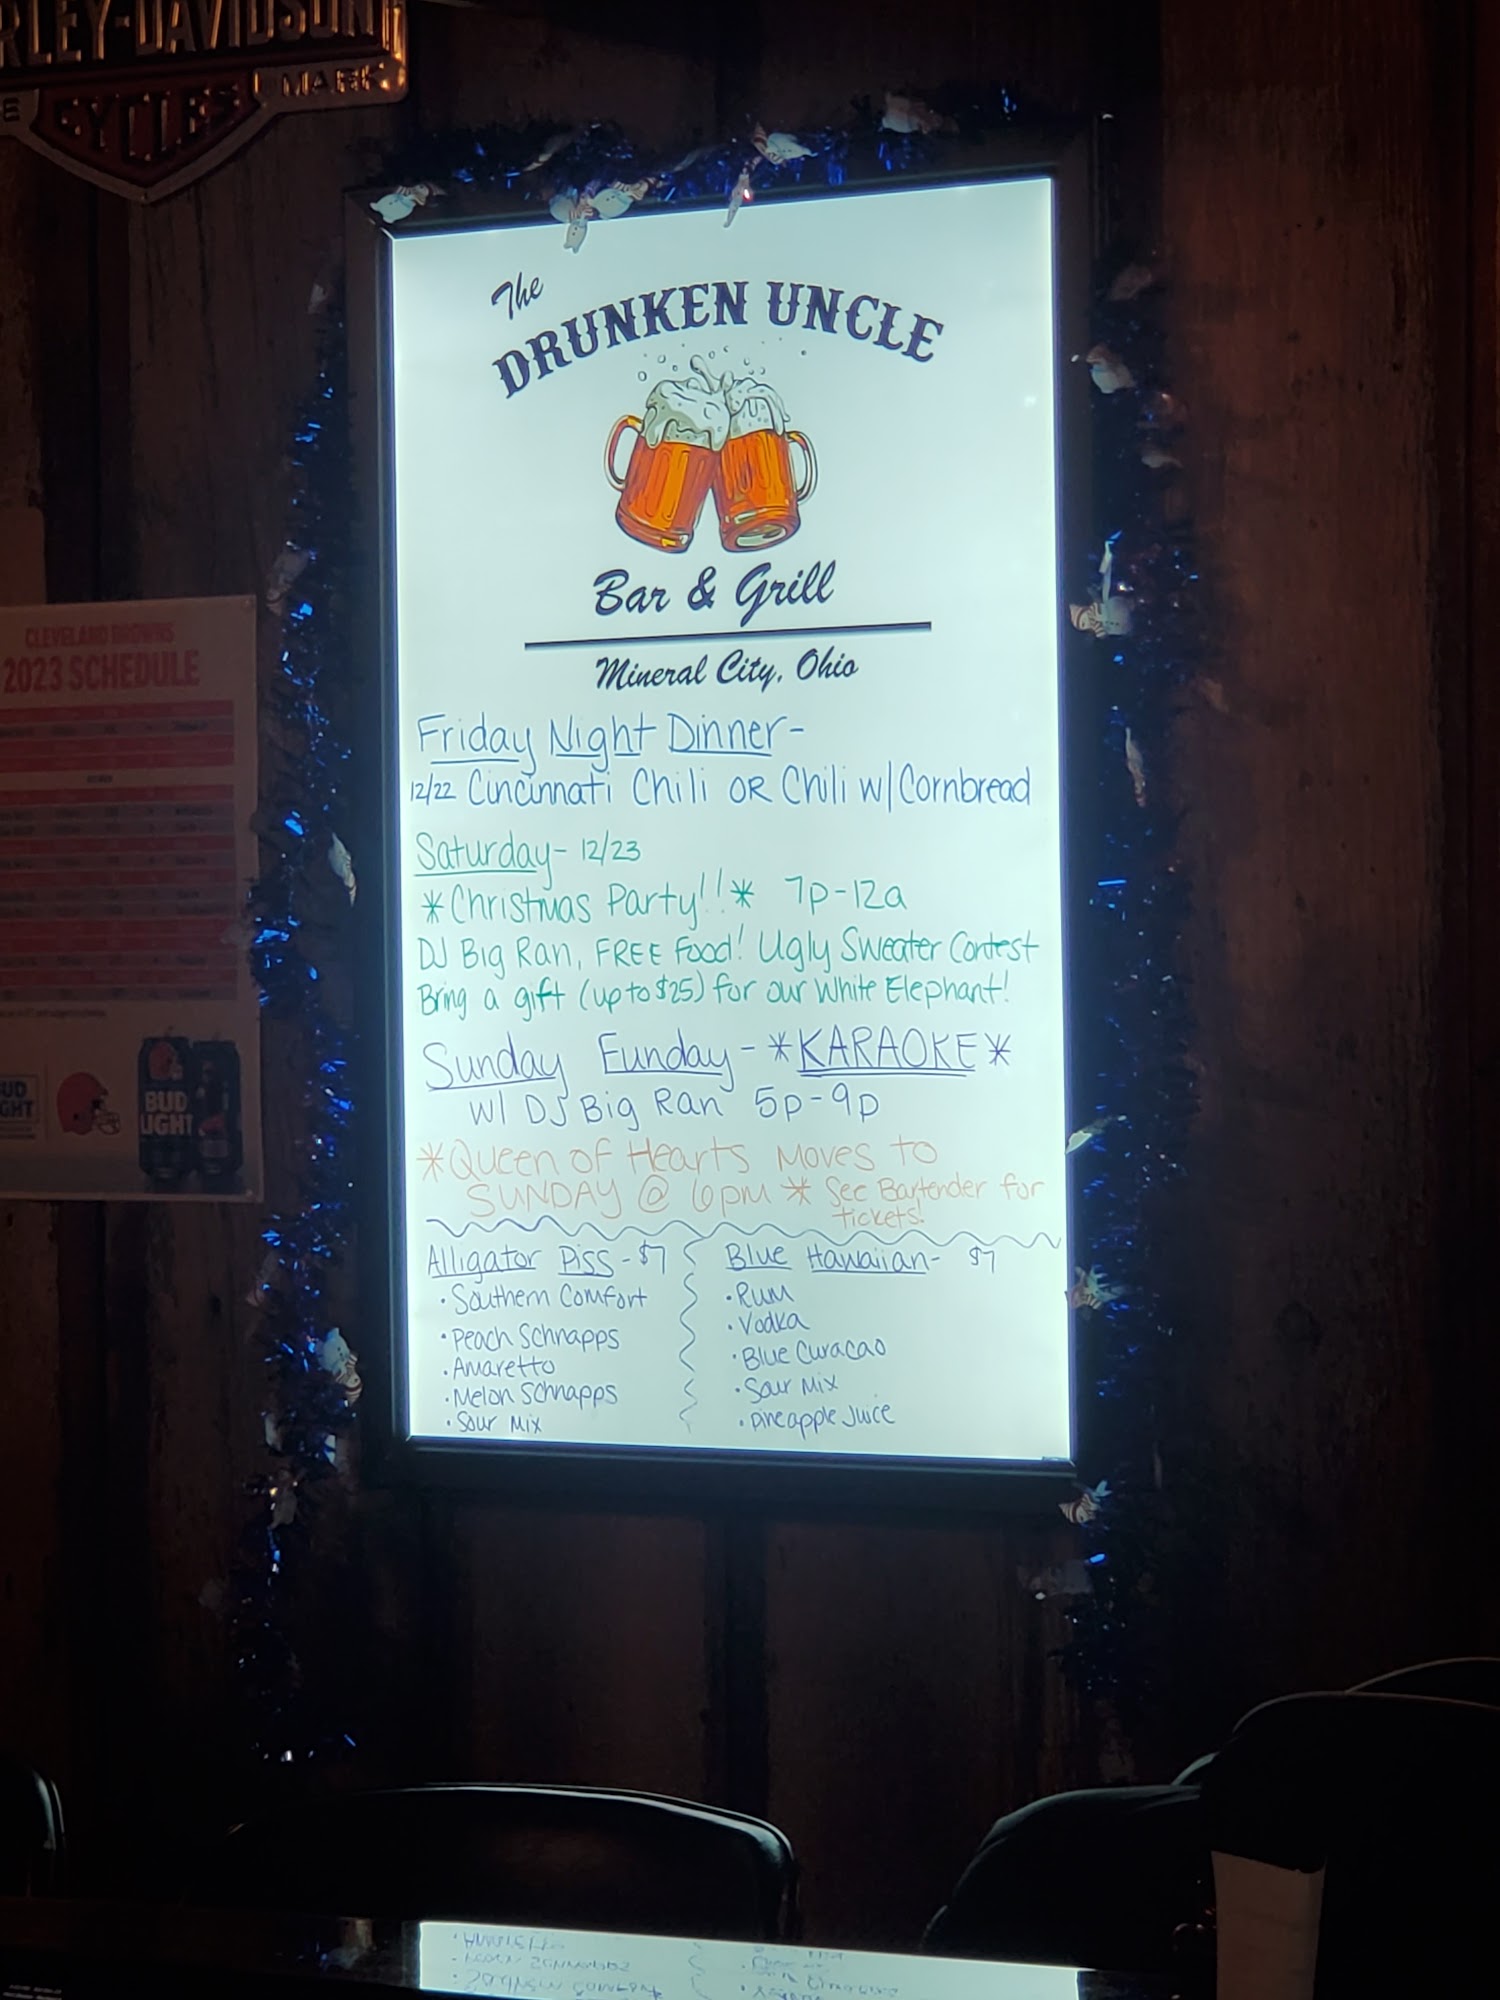 RLEY-DAVIDSON
MARK
CYCLES
The
DRUNKEN UNCLE
Bar & Grill
Mineral City, Ohio
Friday Night Dinner-
12/22 Cincinnati Chili OR Chili w/Cornbread
Saturday- 12/23
*Christmas Party!!* 7p-12a
DJ Big Ran, FREE Food! Ugly Sweater Contest
Bring a gift (up to $25) for our White Elephant!
Sunday Funday- *KARAOKE*
w/ DJ Big Ran 5p-9p
*Queen of Hearts moves to
SUNDAY @ 6pm * See Bartender for
tickets!
Alligator Piss - $7
• Southern Comfort
• Peach Schnapps
• Amaretto
• Melon Schnapps
• Sour Mix
Blue Hawaiian- $7
• Rum
• Vodka
• Blue Curacao
• Sour Mix
• Pineapple Juice
CLEVELAND BROWNS
2023 SCHEDULE
BUD
LIGHT